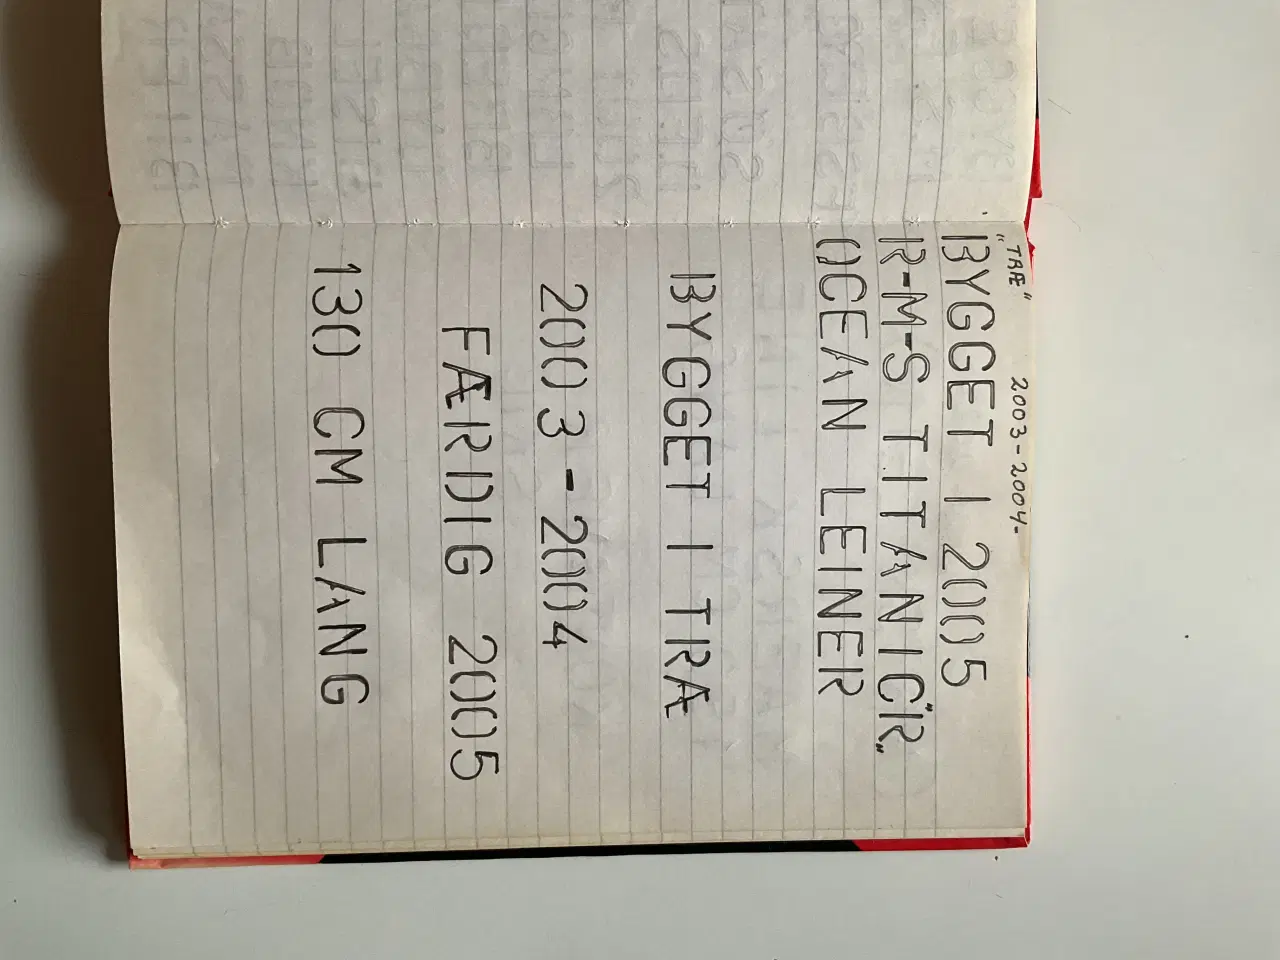 "TRÆ" 2003-2004-
BYGGET I 2005
R-M-S TITANIC "R"
OCEAN LEINER
BYGGET I TRÆ
2003-2004
FÆRDIG 2005
130 CM LANG